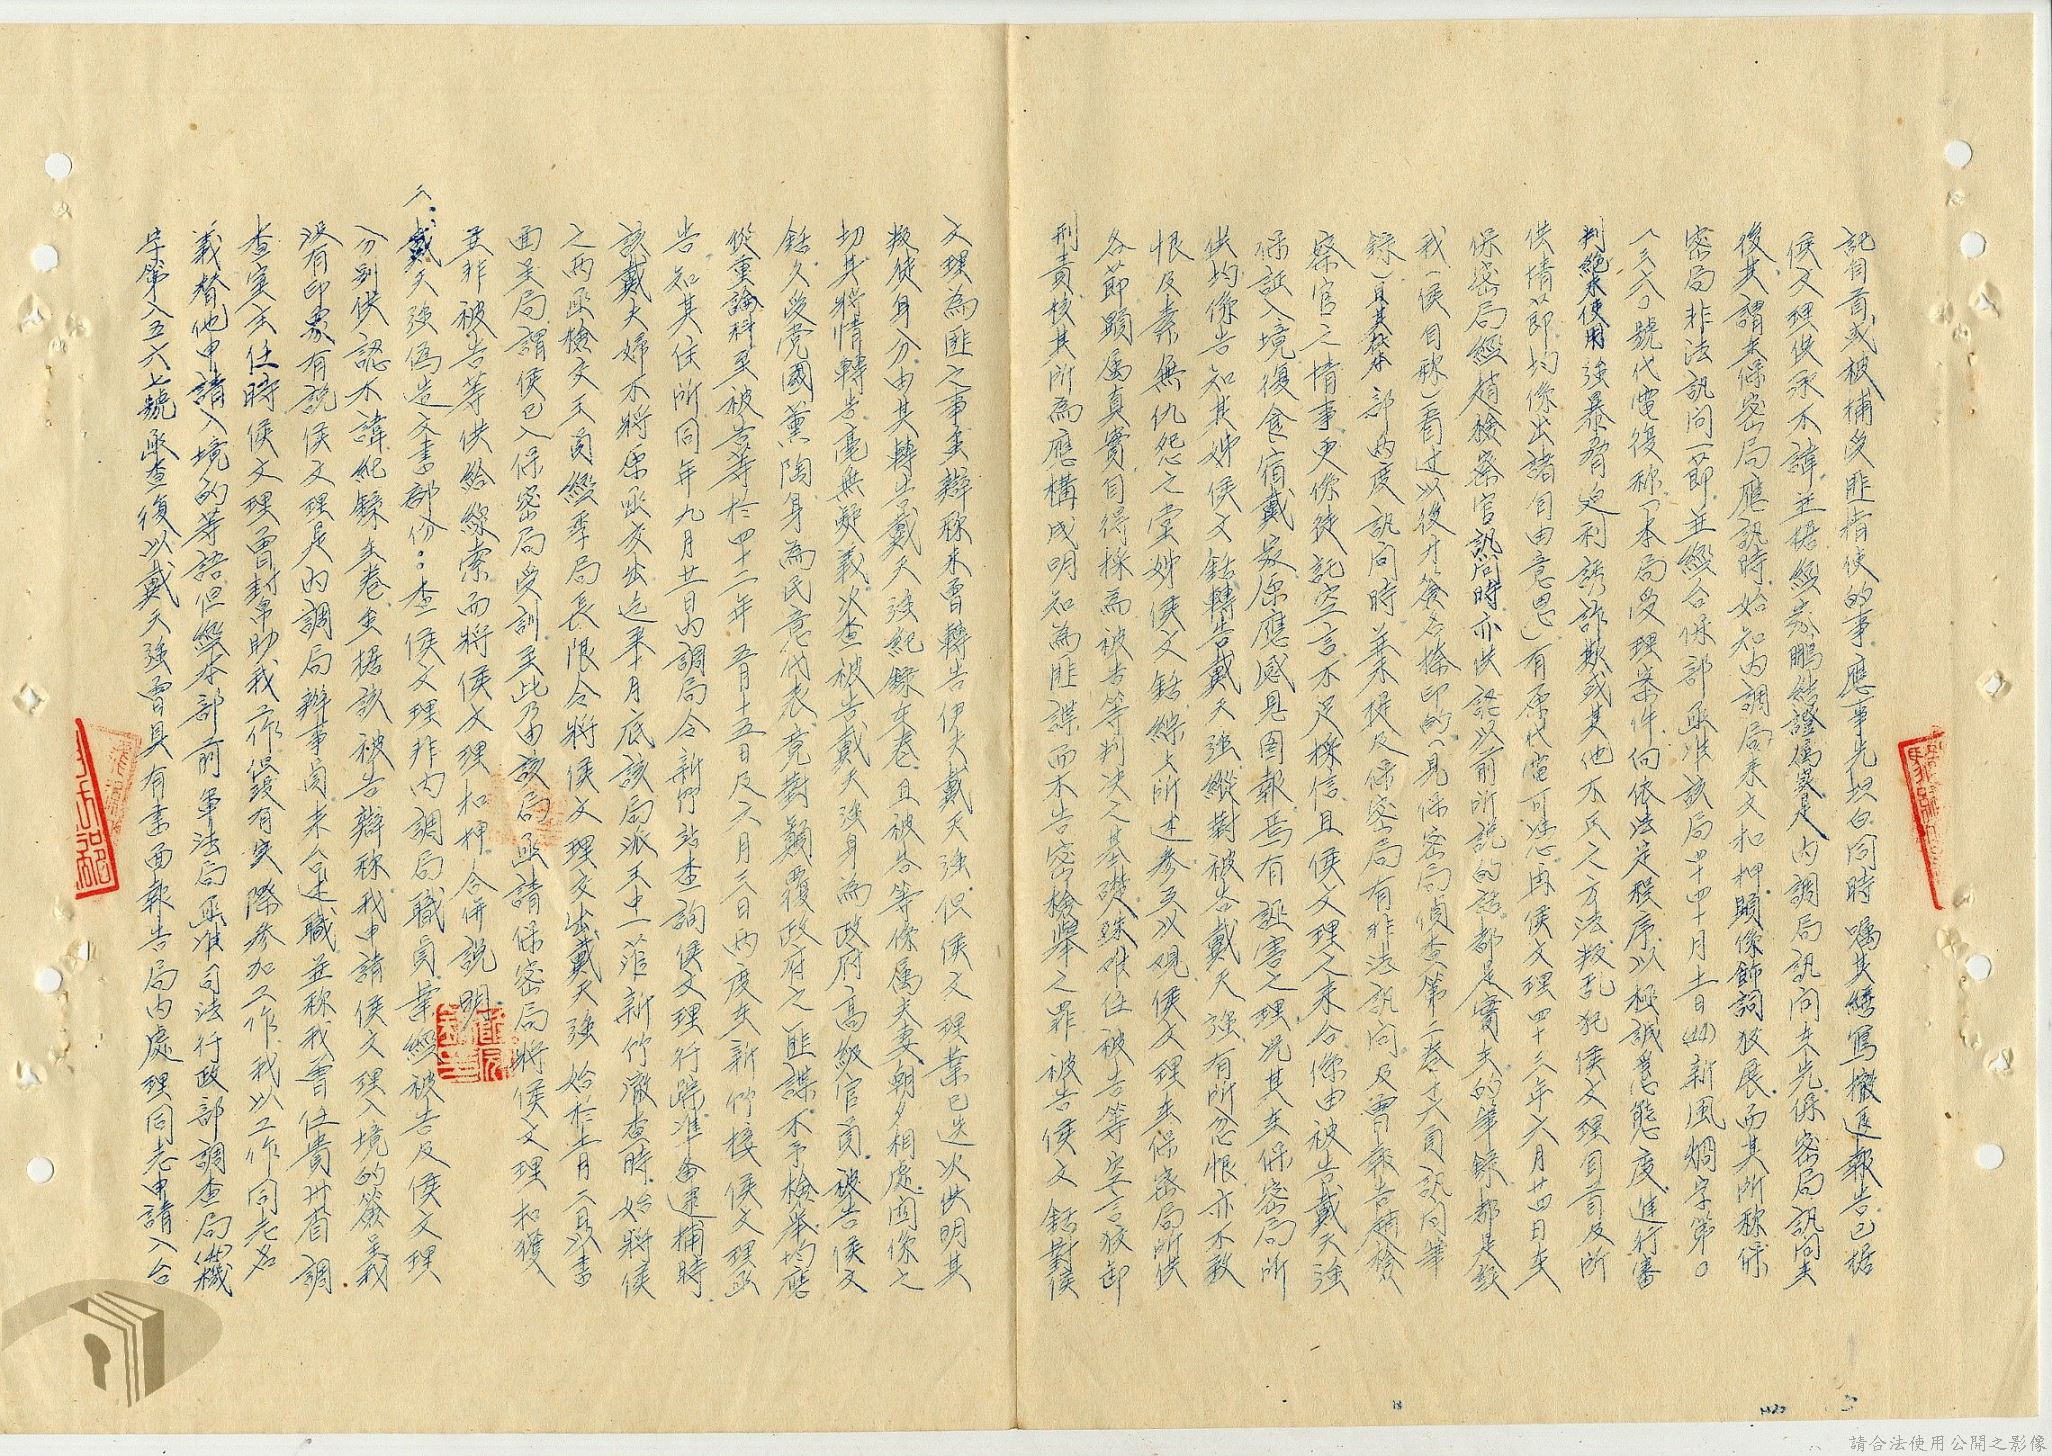 記自首或被捕受匪指使的事應事先坦白同時囑其繕寫撤退報告已据
侯文理供承不諱並據經苏鵬結證屬異是內調局訊問来先保密局訊問去
後其謂未保密局應訊時始知內調局来文和押顯係飾詞狡展而其所称保
密局非法訊問一節並經台保部函准該局四十四十月十日(44)新風烱字第〇
一三六〇號代電復称「本局受理案件向依法定程序以極誠意態度進行審
判絕未使用強暴脅迫利誘詐欺或其他不正之方法叛乱犯侯文理自首及所
供情節均係出諸自由意思」有原代電可憑再侯文理四十三年六月廿四日在
保密局經趙檢察官訊問時亦供認以前所說的話都是實未的筆錄都是給
我(侯自称)看过以後才簽名捺印的(見保密局偵查第二卷 頁訊問筆
錄)且其 本部 度訊問時並未提及保密局有非法訊問及曾報告趙檢
察官之情事更係徒託空言不足採信且侯文理之来台係由被告戴天強
保証入境復食宿戴家原應感恩圖報焉有誣害之理况其在保密局所
供均係告知其姊侯文錦轉告戴天強縱對被告戴天強有所忽恨亦不致
恨及素無仇怨之堂姊侯文錦綜上所述參互以观侯文理在保密局所供
各節顯属真實自得採為被告等判决之基礎殊难任被告等空言狡卸
刑責核其所為應構成明知為匪諜而不告密檢舉之罪被告侯文錦對侯
文理為匪之事實辯称未曾轉告伊夫戴天強但侯文理業已迭次供明其
叛徒身分由其轉告戴天強紀錄在卷且被告等係属夫妻朝夕相處関係之
切其將情轉告毫無疑義次查被告戴天強身為政府高級官員被告侯文
錦久受党國薰陶身為民意代表竟對顛覆政府之匪諜不予檢舉均應
從重論科至被告等於四十二年五月十五日及六月三日两度在新竹接侯文理函
告知其住所同年九月廿日內調局令新竹站查詢侯文理行踪準备逮捕時
該戴夫婦不將原函交出迄来十月底該局派王中一蒞新竹澈查時始將侯
之两函檢交王員經季局長限令將侯文理交出戴天強始於十月二日以書
面呈局謂侯已入保密局受訓至此乃由該局函請保密局將侯文理扣獲
並非被告等供給線索而將侯文理扣押合併說明
二、戴天強偽造文書部份：查侯文理非內調局職員業經被告及侯文理
分別供認不諱紀錄在卷並據該被告辯称我申請侯文理入境的簽呈我
没有印象有說侯文理是內調局辦事員来台述職並称我曾任貴州省調
查室主任時侯文理曾封帛眇我工作但沒有实際參加工作我以工作同志名
義替他申請入境的等語但經本部前軍法局函准司法行政部調查局(44)機
字第八五六七號函查復以戴天強曾具有書面報告局內處理同志申請入台
請合法使用公開之影像